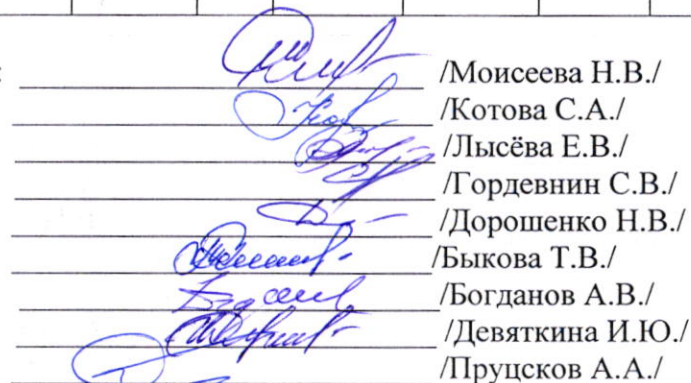 /Моисеева Н.В./
/Котова С.А./
/Лысёва Е.В./
/Гордевнин С.В./
/Дорошенко Н.В./
/Быкова Т.В./
/Богданов А.В./
/Девяткина И.Ю./
/Пруцсков А.А./